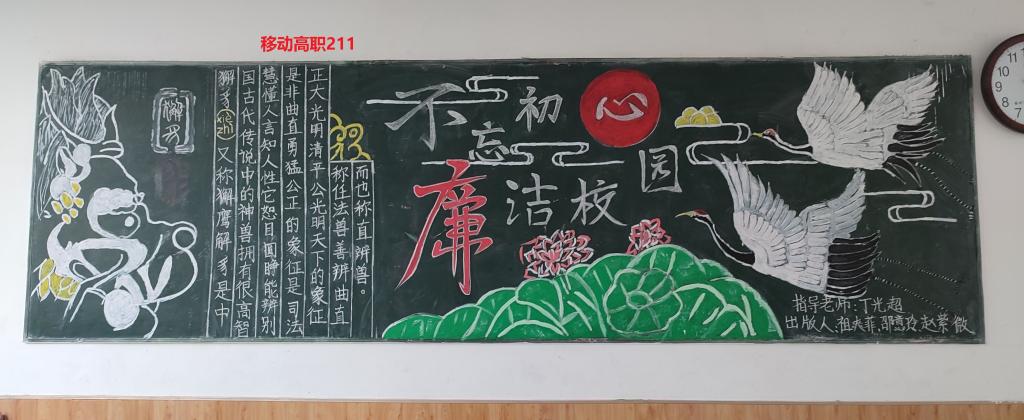 移动高职211
獬豸
獬豸(zhi)又称獬鹰解豸是中
国古代传说中的神兽拥有很高智
慧懂人言知人性它怒目圆睁能辨别
是非曲直勇猛公正的象征是司法
正大光明清平公光明天下的象征
称任法兽善辨曲直
而也称直辨兽。
不忘初心
廉洁校园
指导老师:丁光超
出版人:祖夫菲 赵紫微
10
11
9
8
7